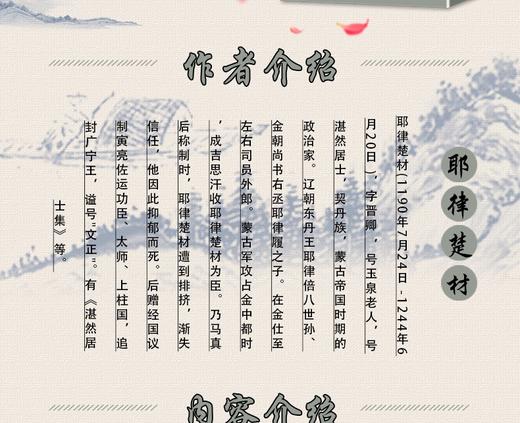 作者介绍
耶律楚材
耶律楚材(1190年7月24日-1244年6
月20日)，字晋卿，号玉泉老人，号
湛然居士，契丹族，蒙古帝国时期的
政治家。辽朝东丹王耶律倍八世孙、
金朝尚书右丞耶律履之子。在金仕至
左右司员外郎。蒙古军攻占金中都时
，成吉思汗收耶律楚材为臣。乃马真
后称制时，耶律楚材遭到排挤，渐失
信任，他因此抑郁而死。后赠经国议
制寅亮佐运功臣、太师、上柱国，追
封广宁王，谥号“文正”。有《湛然居
士集》等。
内容介绍